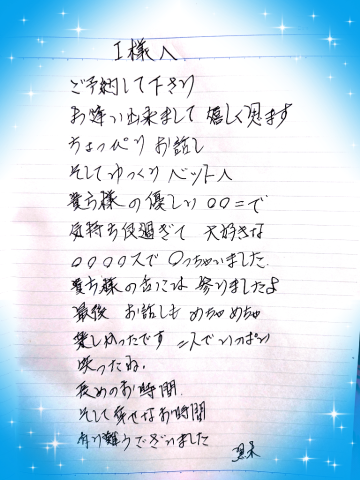 I様へ
ご予約して下さり
お逢い出来まして 嬉しく思ます
ちょっぴり お話し
そしてゆっくり ベットへ
貴方様の優しい〇〇ニで
気持ち良過ぎて 大好きな
〇〇〇〇スで 〇っちゃいました.
貴方様の には 参りましたよ
最後 お話しも めちゃめちゃ
楽しかったです ニ人でいっぱい
笑ったね.
長めのお時間.
そして幸せなお時間
有り難うございました